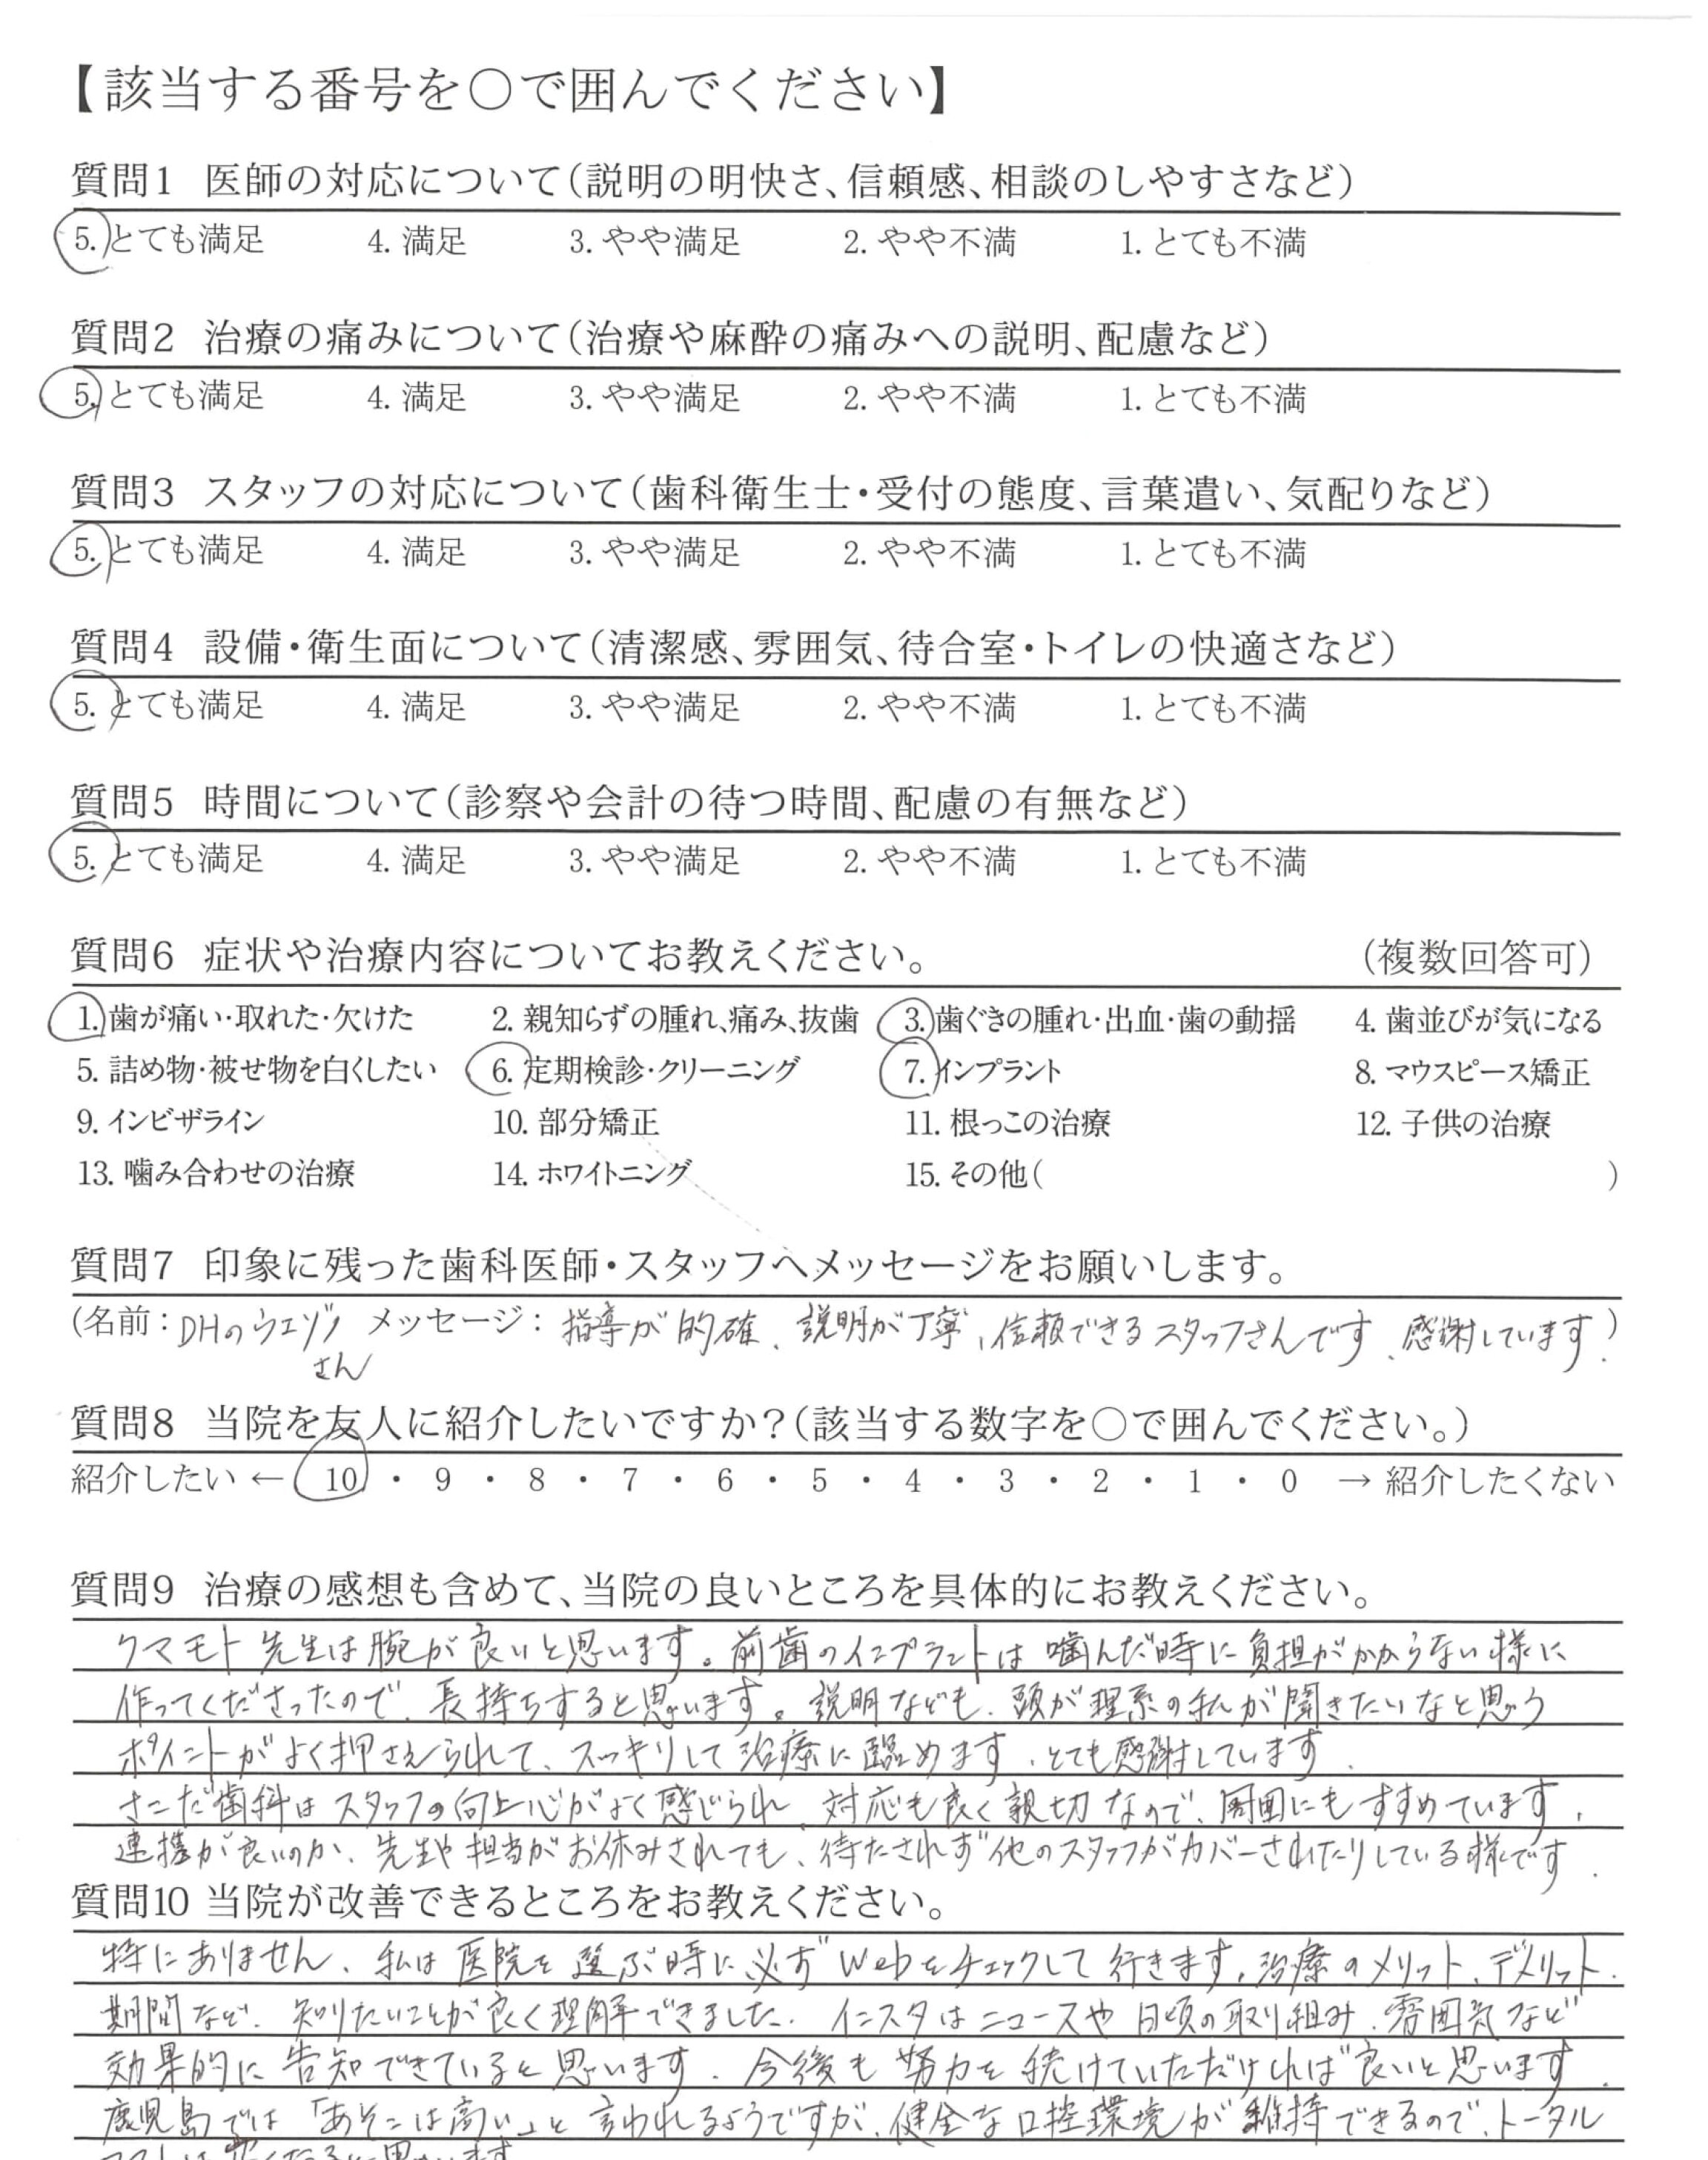 【該当する番号を〇で囲んでください】
質問1 医師の対応について（説明の明快さ、信頼感、相談のしやすさなど）
5. とても満足 4. 満足 3. やや満足 2. やや不満 1. とても不満
質問2 治療の痛みについて（治療や麻酔の痛みへの説明、配慮など）
5. とても満足 4. 満足 3. やや満足 2. やや不満 1. とても不満
質問3 スタッフの対応について（歯科衛生士・受付の態度、言葉遣い、気配りなど）
5. とても満足 4. 満足 3. やや満足 2. やや不満 1. とても不満
質問4 設備・衛生面について（清潔感、雰囲気、待合室・トイレの快適さなど）
5. とても満足 4. 満足 3. やや満足 2. やや不満 1. とても不満
質問5 時間について（診察や会計の待つ時間、配慮の有無など）
5. とても満足 4. 満足 3. やや満足 2. やや不満 1. とても不満
質問6 症状や治療内容についてお教えください。 （複数回答可）
1. 歯が痛い・取れた・欠けた 2. 親知らずの腫れ、痛み、抜歯 3. 歯ぐきの腫れ・出血・歯の動揺 4. 歯並びが気になる
5. 詰め物・被せ物を白くしたい 6. 定期検診・クリーニング 7. インプラント 8. マウスピース矯正
9. インビザライン 10. 部分矯正 11. 根っこの治療 12. 子供の治療
13. 噛み合わせの治療 14. ホワイトニング 15. その他（ ）
質問7 印象に残った歯科医師・スタッフへメッセージをお願いします。
（名前：DHのウエゾノ メッセージ：指導が的確、説明が丁寧、信頼できるスタッフさんです、感謝しています）
さん
質問8 当院を友人に紹介したいですか？（該当する数字を〇で囲んでください。）
紹介したい ← 10 ・ 9 ・ 8 ・ 7 ・ 6 ・ 5 ・ 4 ・ 3 ・ 2 ・ 1 ・ 0 → 紹介したくない
質問9 治療の感想も含めて、当院の良いところを具体的にお教えください。
クマモト先生は腕が良いと思います。前歯のインプラントは噛んだ時に負担がかからない様に
作ってくださったので、長持ちすると思います。説明なども、頭が理系の私が聞きたいなと思う
ポイントがよく押さえられて、スッキリして治療に臨めます、とても感謝しています、
さこだ歯科はスタッフの向上心がよく感じられ、対応も良く親切なので、周囲にもすすめています、
連携が良いのか、先生や担当がお休みされても、待たされず他のスタッフがカバーされたりしている様です、
質問10 当院が改善できるところをお教えください。
特にありません、私は医院を選ぶ時に必ずWebをチェックして行きます、治療のメリット、デメリット、
期間など、知りたいことが良く理解できました、インスタはニュースや日頃の取り組み、雰囲気など
効果的に告知できていると思います、今後も努力を続けていただければ良いと思います、
鹿児島では「あそこは高い」と言われるようですが、健全な口控環境が維持できるので、トータル